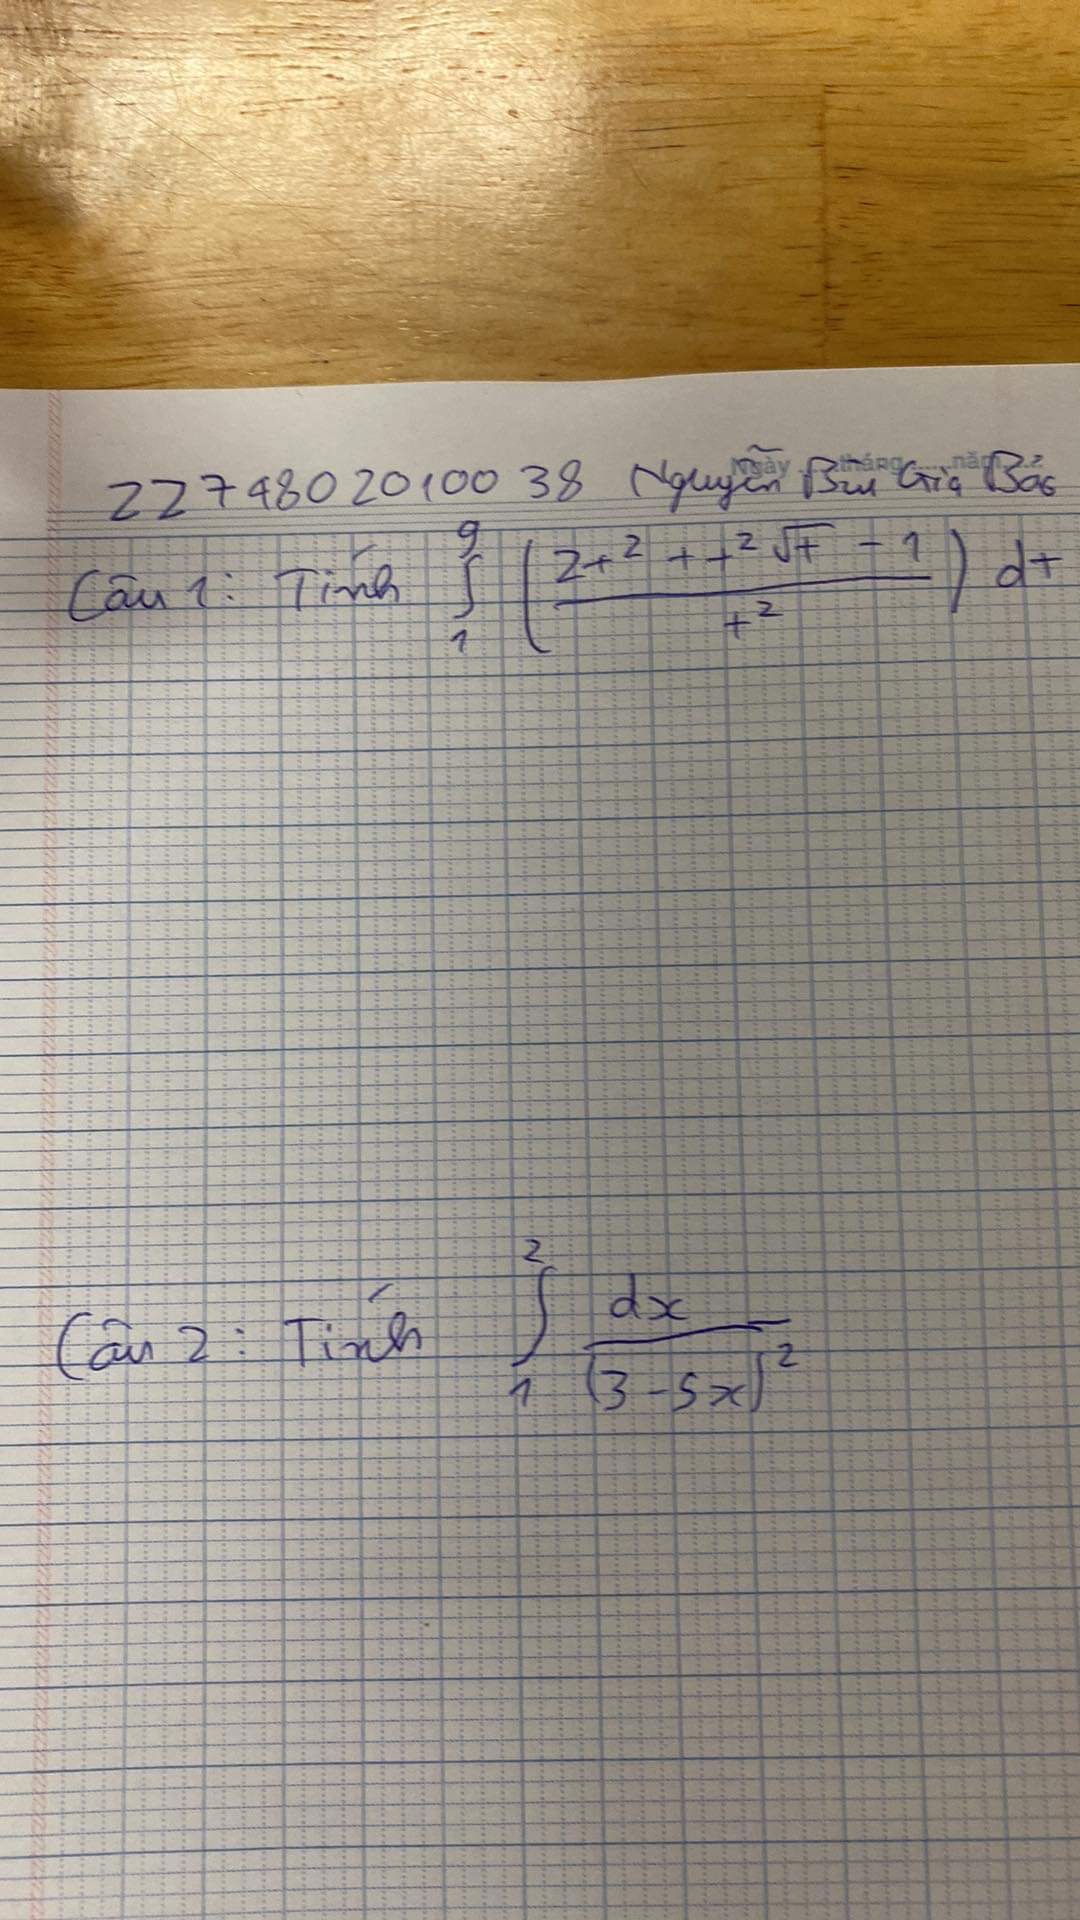 2274802010038 Nguyễn Bùi Gia Bảo
Ngày tháng năm
Câu 1: Tính ∫₁⁹ ((2t² + t²√t - 1) / t²) dt
Câu 2: Tính ∫₁² dx / (3 - 5x)²